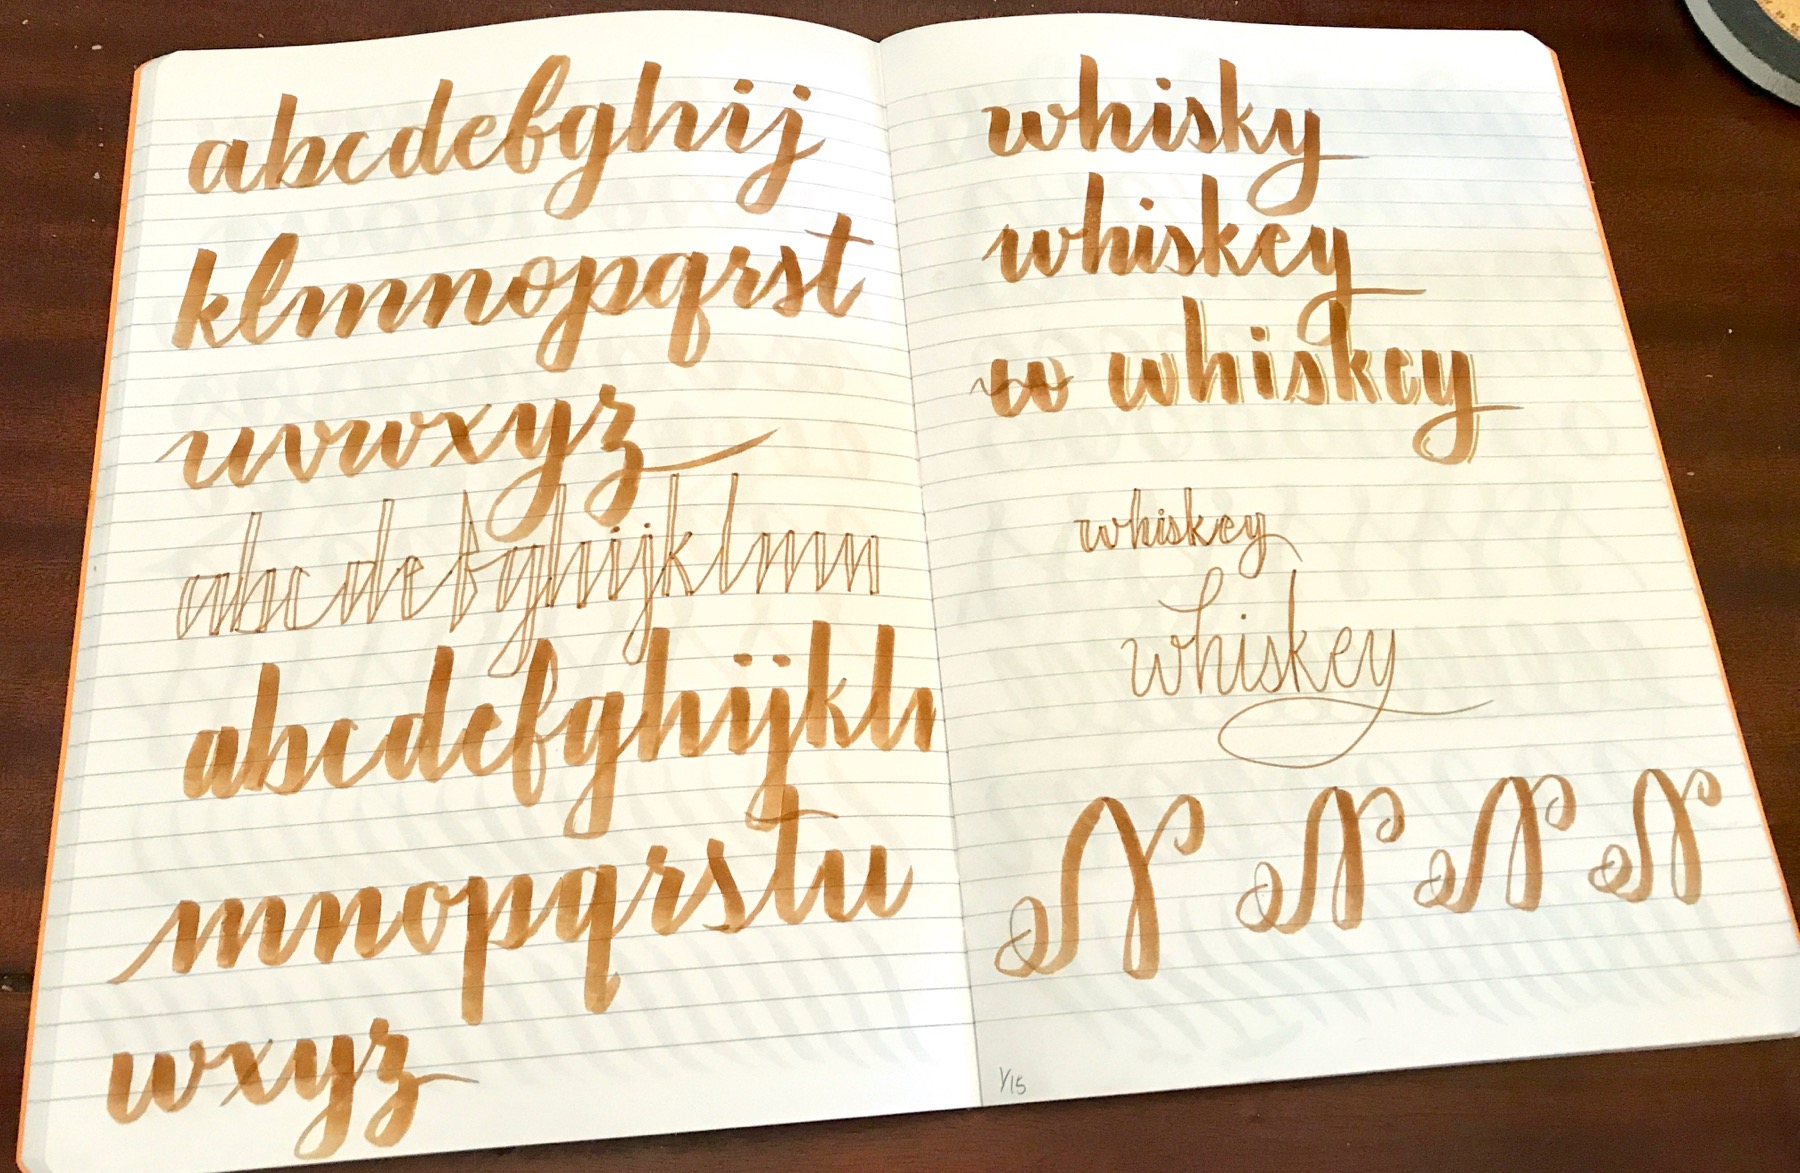 abcdefghij
klmnopqrst
uvwxyz
abcdefghijklmn
abcdefghijkl
mnopqrstu
wxyz
whisky
whiskey
w whiskey
whiskey
whiskey
N N N N
1/15